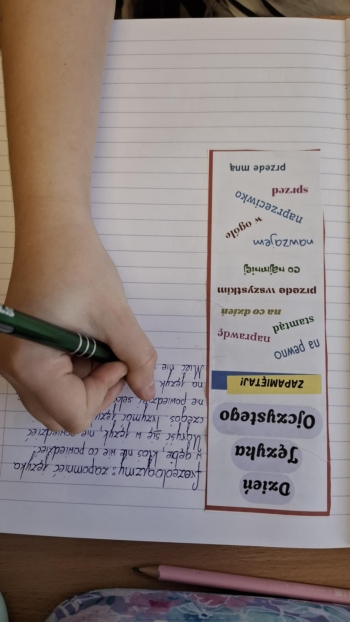 Dzień
Języka
Ojczystego
ZAPAMIĘTAJ!
na pewno
naprawdę
stamtąd
na co dzień
przede wszystkim
co najmniej
nawzajem
w ogóle
naprzeciwko
sprzed
przede mną
frazeologizmy: zapomnieć języka
w gębie, ktoś nie wie co powiedzieć
Ugryźć się w język, nie powiedzieć
czegoś, trzymać język
nie powiedzieć
na język
Mieć nie